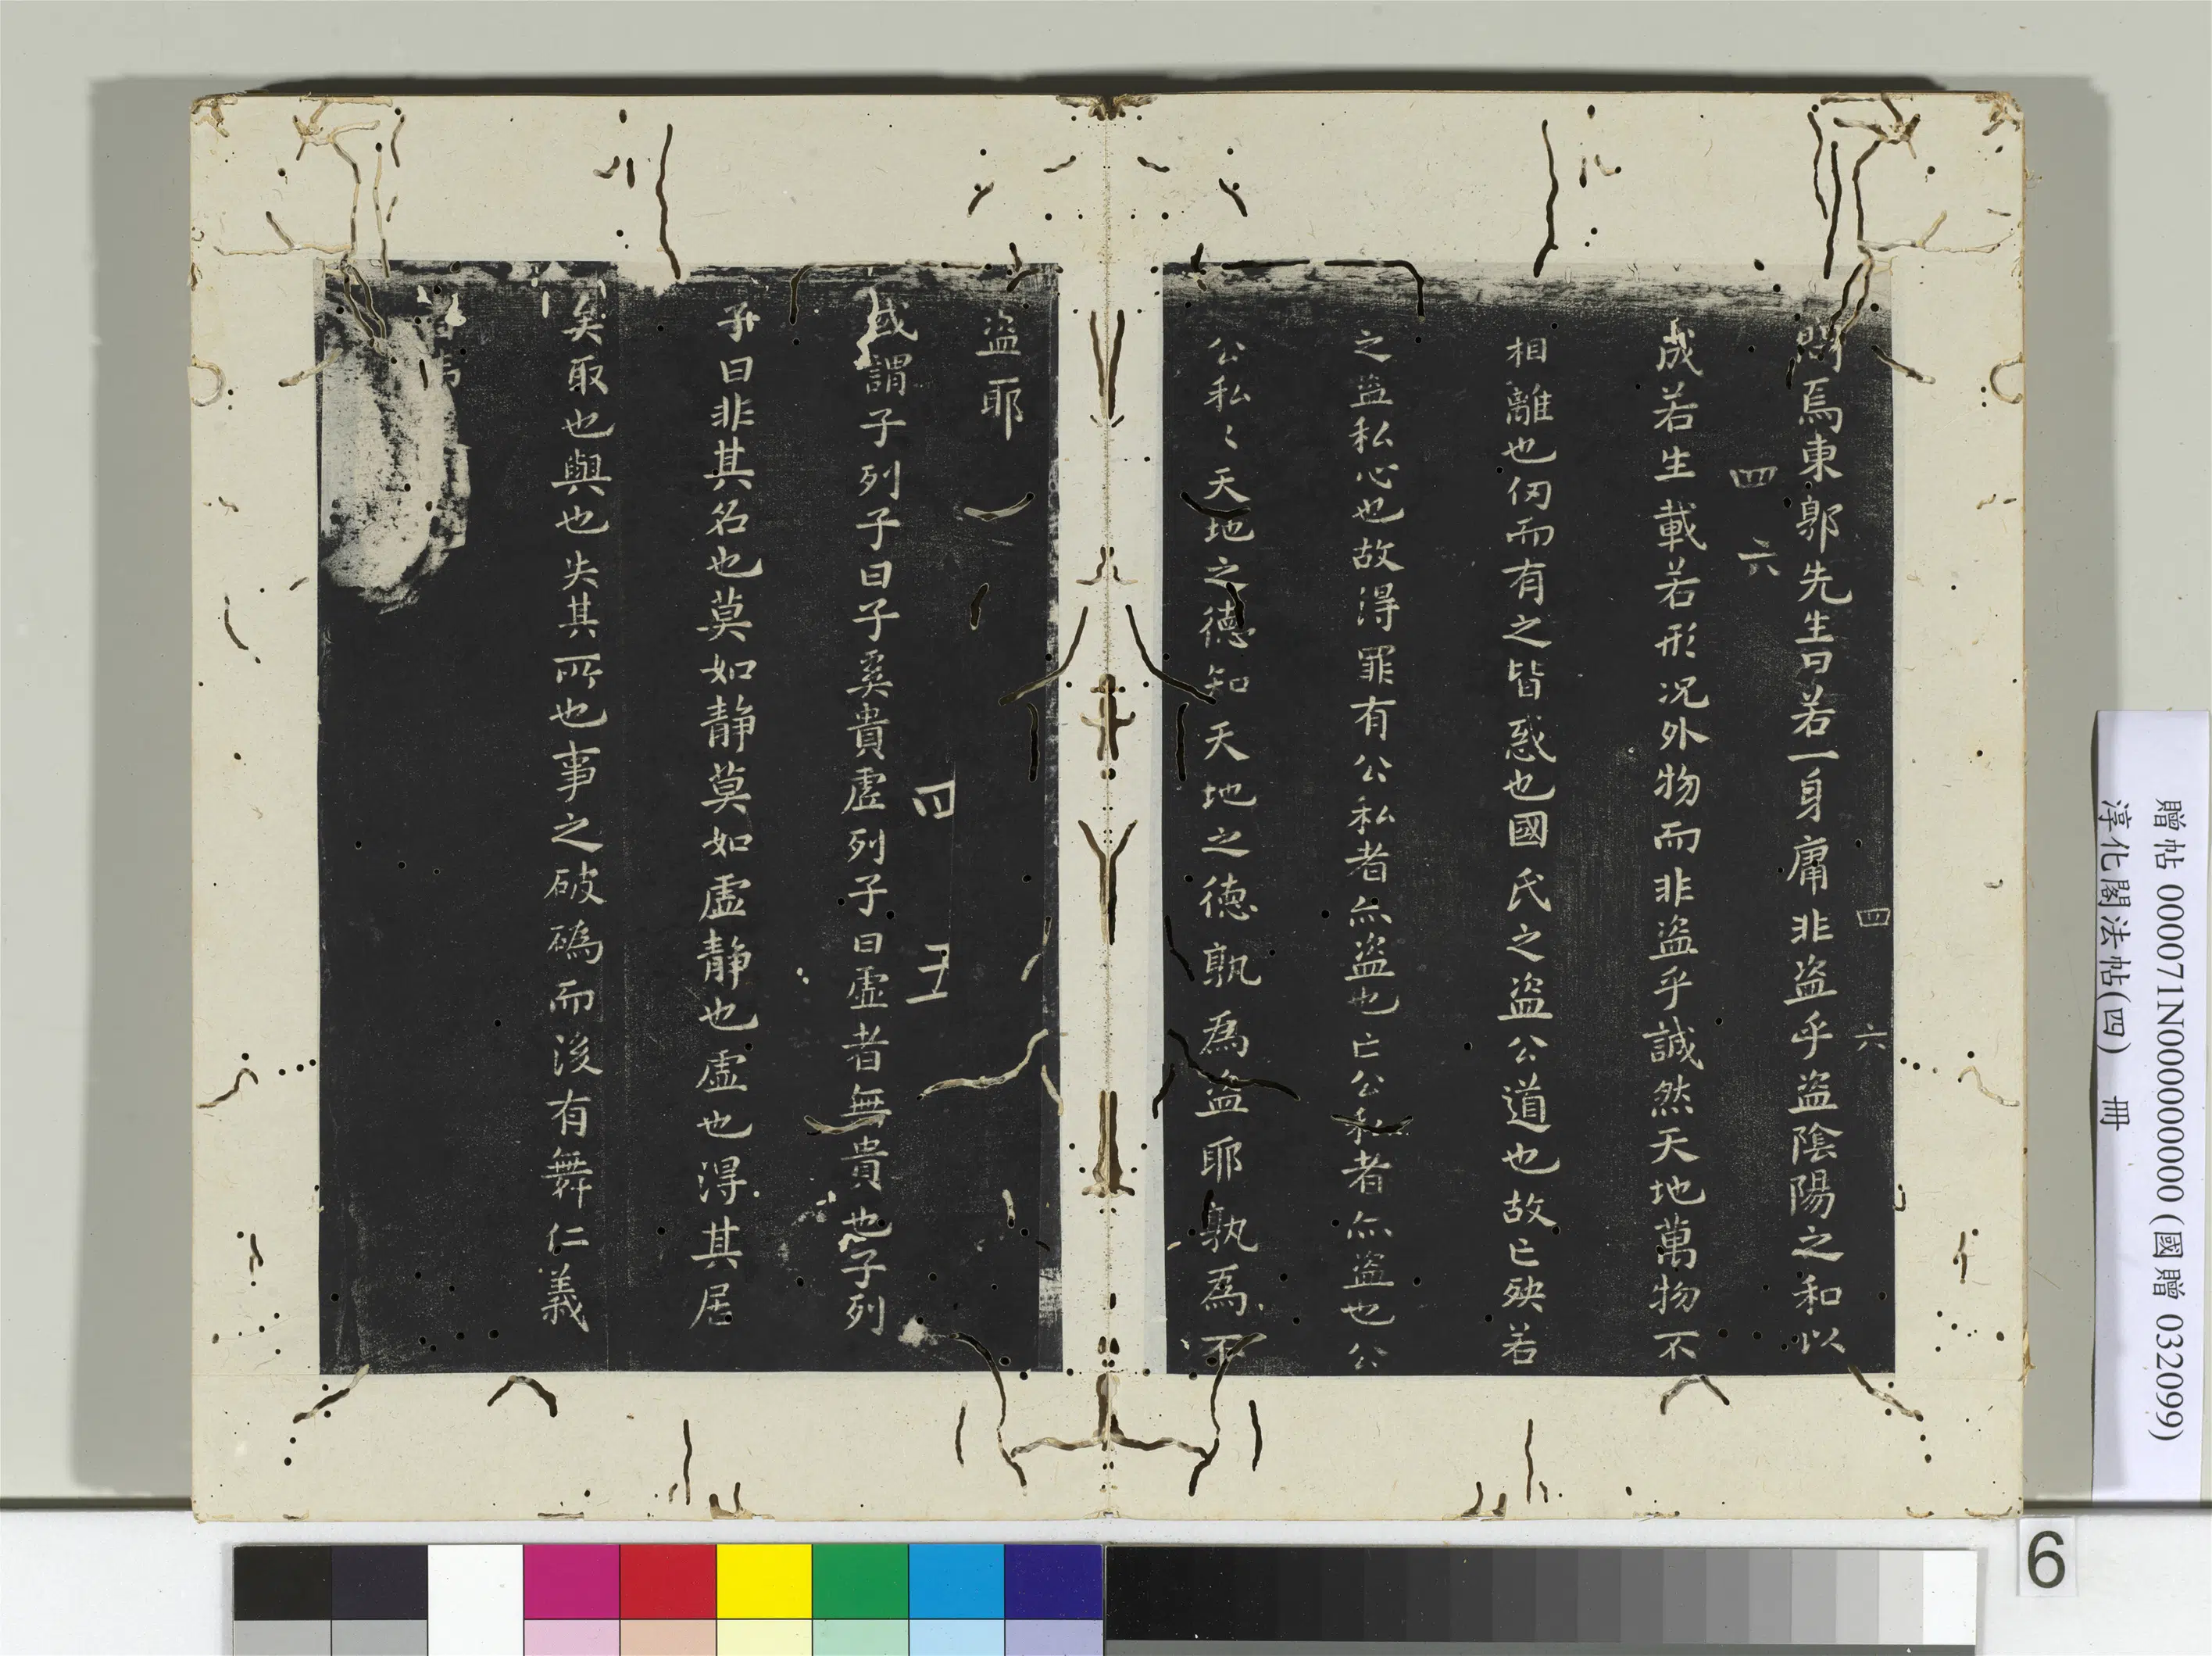 問焉東郭先生曰若一身庸非盜乎盜陰陽之和以
四 六
四 六
成若生載若形況外物而非盜乎誠然天地萬物不
相離也仞而有之皆惑也國氏之盜公道也故亡殃若
之盜私心也故得罪有公私者亦盜也亡公私者亦盜也公
公私〻天地之德知天地之德孰為盜耶孰為不
盜耶
四 五
或謂子列子曰子奚貴虛列子曰虛者無貴也子列
子曰非其名也莫如靜莫如虛靜也虛也得其居
矣取也與也失其所也事之破䃣而後有舞仁義
贈帖 000071N000000000 (國贈 032099)
淳化閣法帖(四) 冊
6